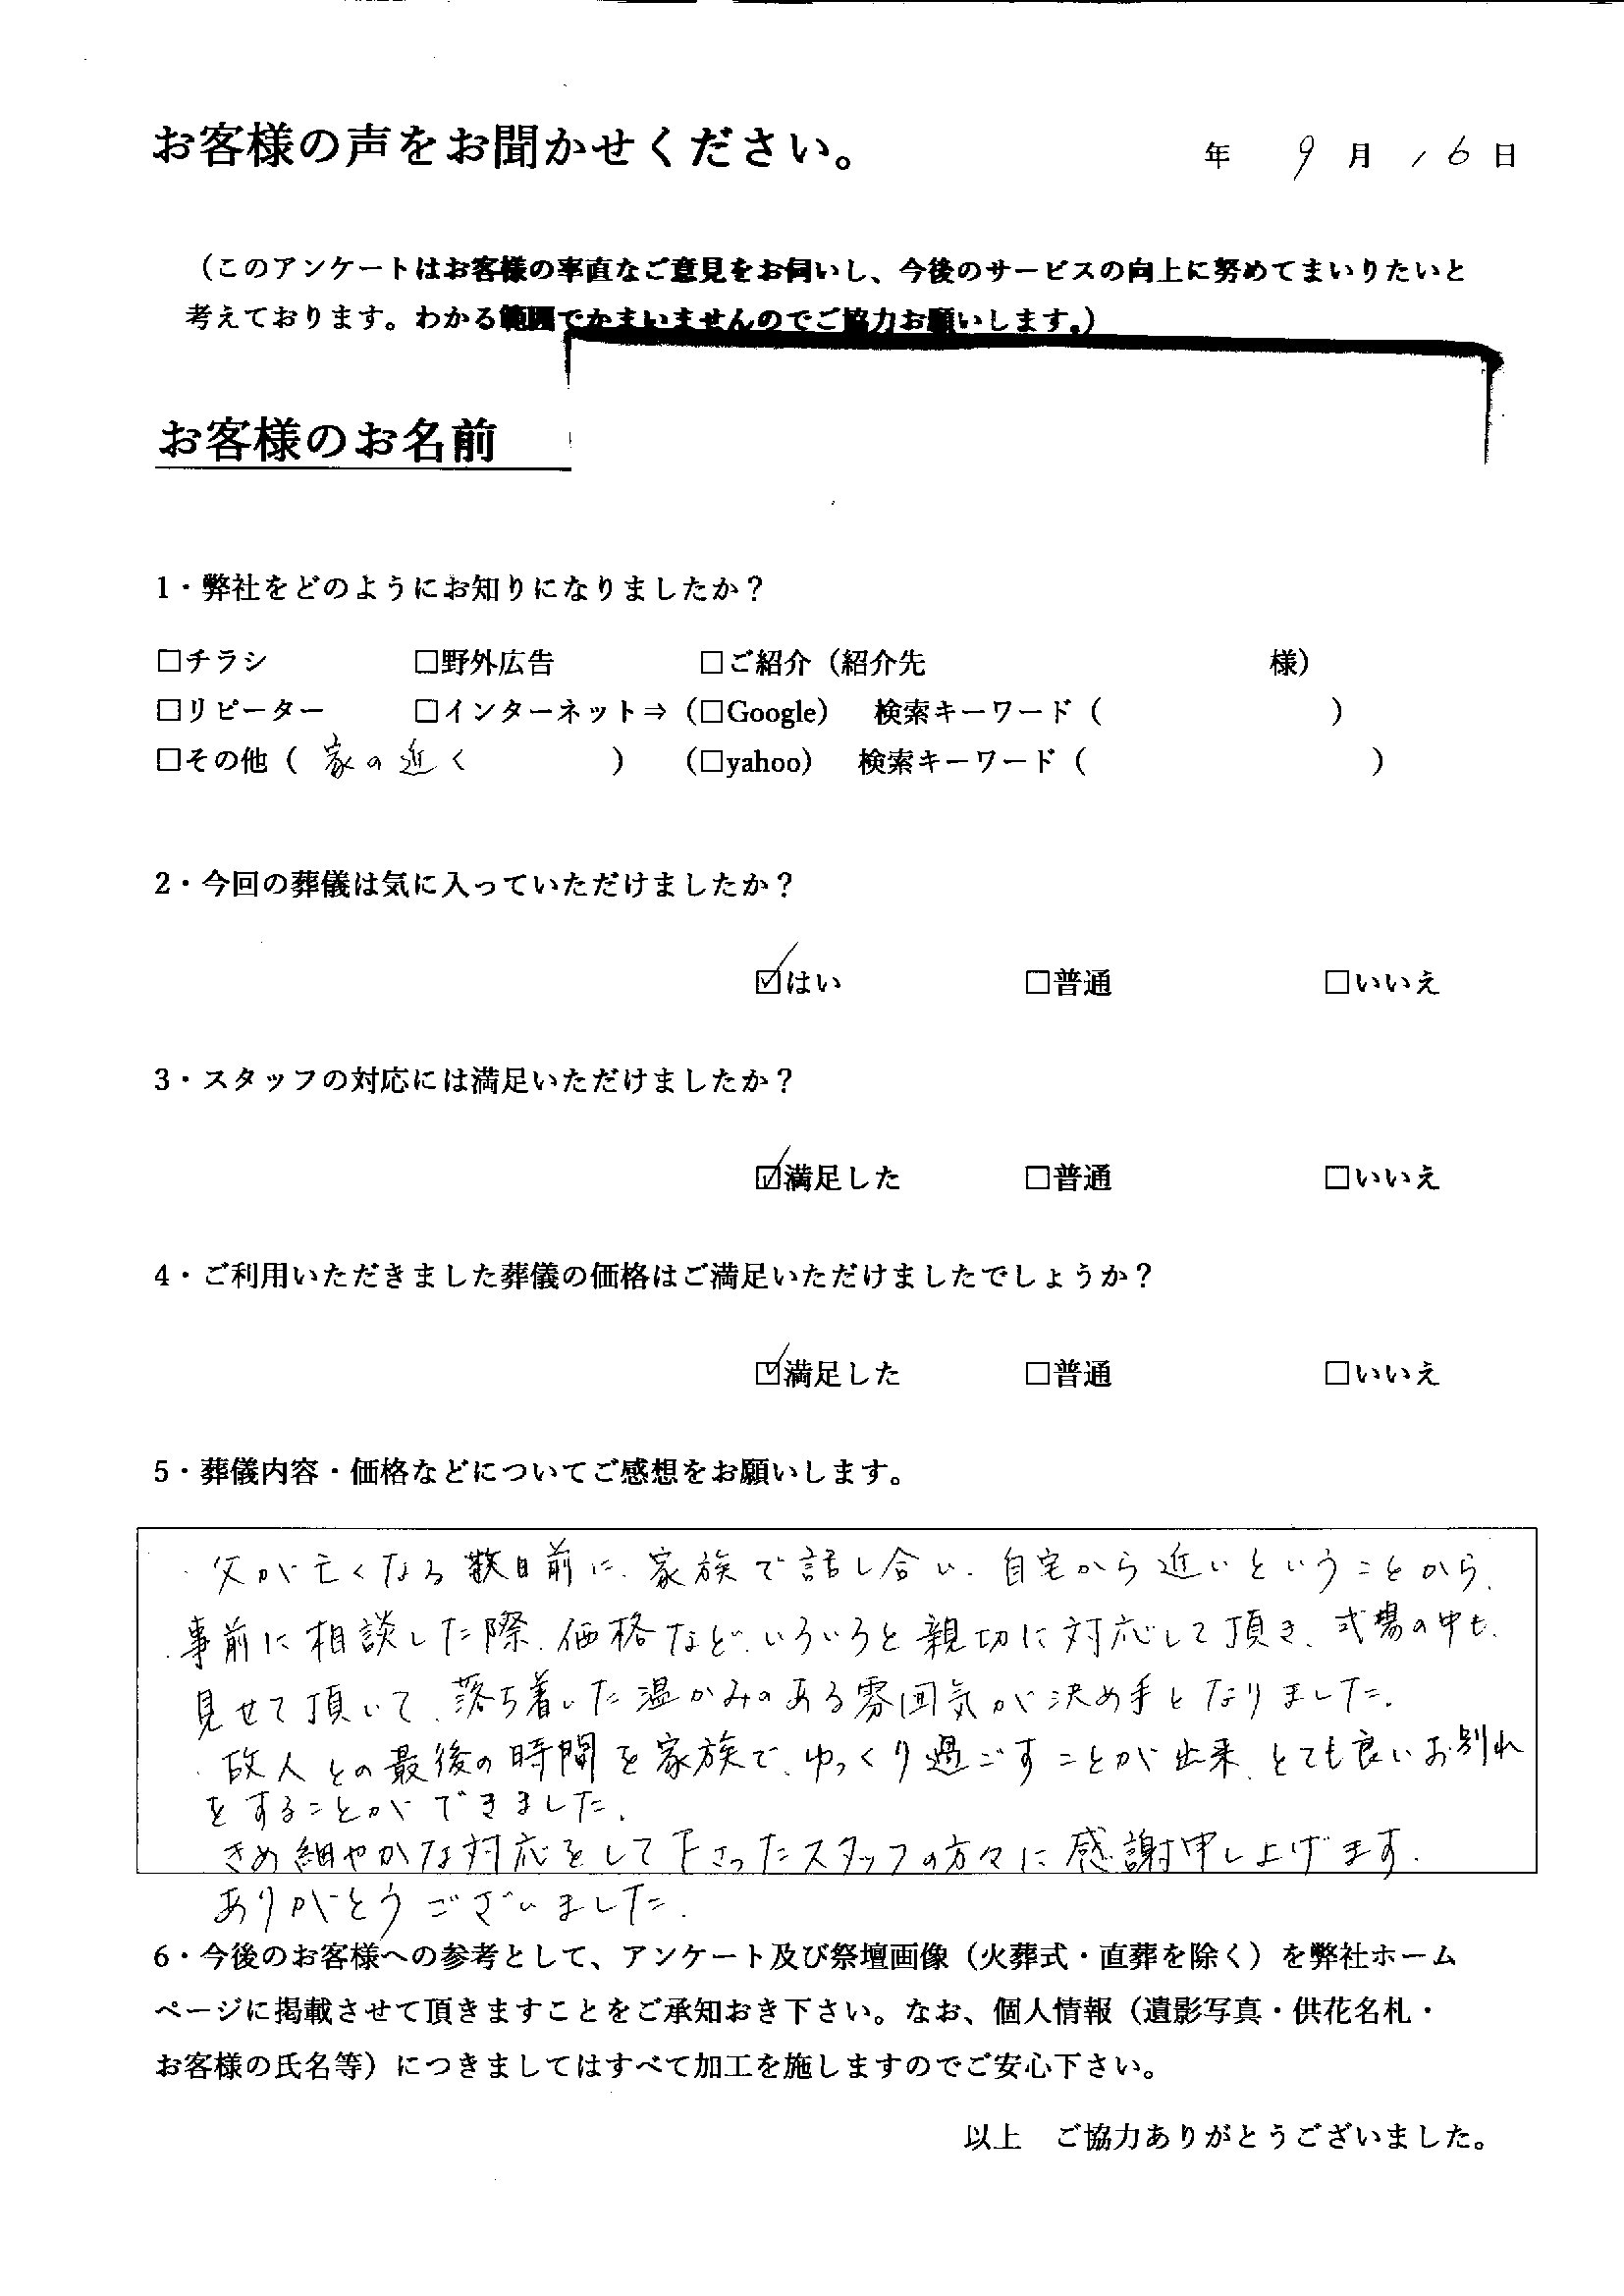 お客様の声をお聞かせください。 年 9 月 16 日
（このアンケートはお客様の率直なご意見をお伺いし、今後のサービスの向上に努めてまいりたいと
考えております。わかる範囲でかまいませんのでご協力お願いします。）
お客様のお名前
1・弊社をどのようにお知りになりましたか？
□チラシ □野外広告 □ご紹介（紹介先 様）
□リピーター □インターネット⇒（□Google） 検索キーワード（ ）
□その他（ 家の近く ） （□yahoo） 検索キーワード（ ）
2・今回の葬儀は気に入っていただけましたか？
☑はい □普通 □いいえ
3・スタッフの対応には満足いただけましたか？
☑満足した □普通 □いいえ
4・ご利用いただきました葬儀の価格はご満足いただけましたでしょうか？
☑満足した □普通 □いいえ
5・葬儀内容・価格などについてご感想をお願いします。
父が亡くなる数日前に、家族で話し合い、自宅から近いということから、
事前に相談した際、価格など、いろいろと親切に対応して頂き、式場の中も、
見せて頂いて、落ち着いた温かみのある雰囲気が決め手となりました。
故人との最後の時間を家族で、ゆっくり過ごすことが出来、とても良いお別れ
をすることができました。
きめ細やかな対応をして下さったスタッフの方々に感謝申し上げます。
ありがとうございました。
6・今後のお客様への参考として、アンケート及び祭壇画像（火葬式・直葬を除く）を弊社ホーム
ページに掲載させて頂きますことをご承知おき下さい。なお、個人情報（遺影写真・供花名札・
お客様の氏名等）につきましてはすべて加工を施しますのでご安心下さい。
以上 ご協力ありがとうございました。